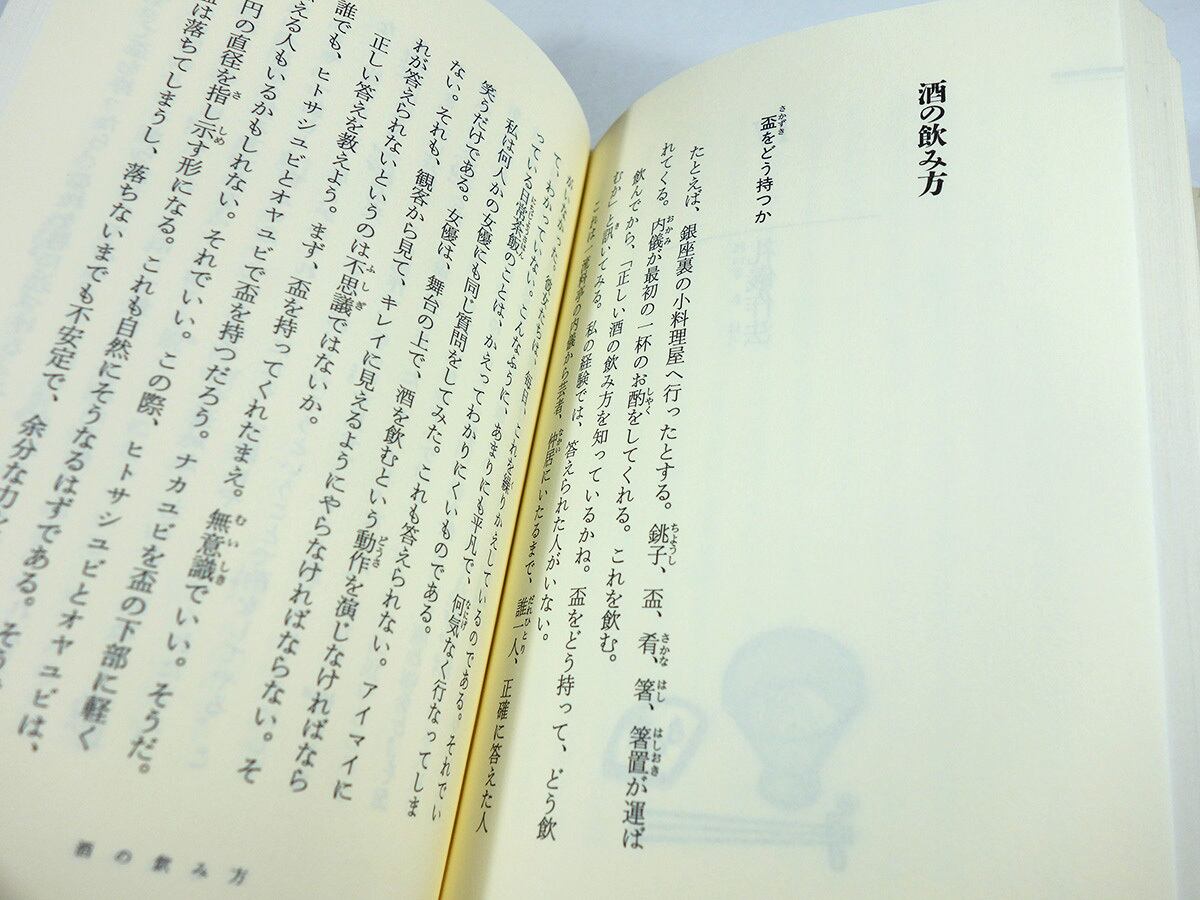 酒の飲み方
盃をどう持つか
たとえば、銀座裏の小料理屋へ行ったとする。銚子、盃、肴、箸、箸置が運ば
れてくる。内儀が最初の一杯のお酌をしてくれる。これを飲む。
飲んでから、「正しい酒の飲み方を知っているかね。盃をどう持って、どう飲
むか」と訊いてみる。私の経験では、答えられた人がいない。
これは一流料亭の内儀から芸者、仲居にいたるまで、誰一人、正確に答えた人
がいなかった。彼女たちは、毎日、これを繰りかえしているのである。それでい
て、わかっていない。こんなふうに、あまりにも平凡で、何気なく行なってしま
っている日常茶飯のことは、かえってわかりにくいものである。
私は何人かの女優にも同じ質問をしてみた。これも答えられない。アイマイに
笑うだけである。女優は、舞台の上で、酒を飲むという動作を演じなければなら
ない。それも、観客から見て、キレイに見えるようにやらなければならない。そ
れが答えられないというのは不思議ではないか。
正しい答えを教えよう。まず、盃を持ってくれたまえ。無意識でいい。そうだ。
誰でも、ヒトサシユビとオヤユビで盃を持つだろう。ナカユビを盃の下部に軽く
える人もいるかもしれない。それでいい。この際、ヒトサシユビとオヤユビは、
円の直径を指し示す形になる。これも自然にそうなるはずである。
は落ちてしまうし、落ちないまでも不安定で、余分な力
酒の飲み方